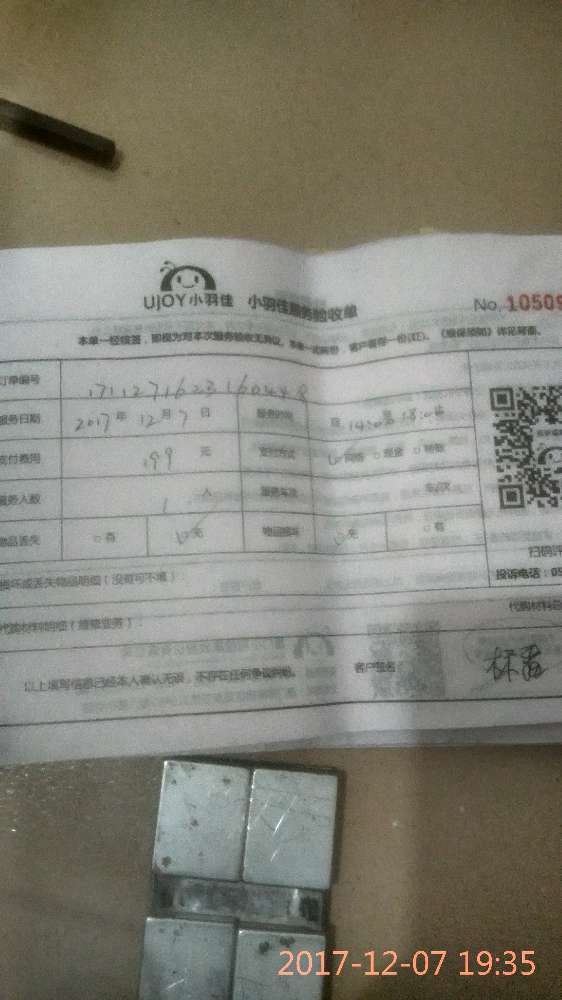 UJOY小羽佳 小羽佳服务验收单
No.10509
本单一经核签，即视为对本次服务验收无异议。本单一式两份，客户留存一份(红)。《服保须知》详见背面。
订单编号
服务日期 2017年 12月 7日 服务时间 14:00 18:00
支付费用 199 元 支付方式 网络 □现金 □转账
服务人数 1 人 服务车次 车/次
物品丢失 □有 无 物品损坏 无 □有
扫码评
损坏或丢失物品明细（没有可不填）：
投诉电话：05
代购材料明细（维修业务）：
代购材料总
以上填写信息已经本人确认无误，不存在任何争议纠纷。 客户签名：
2017-12-07 19:35